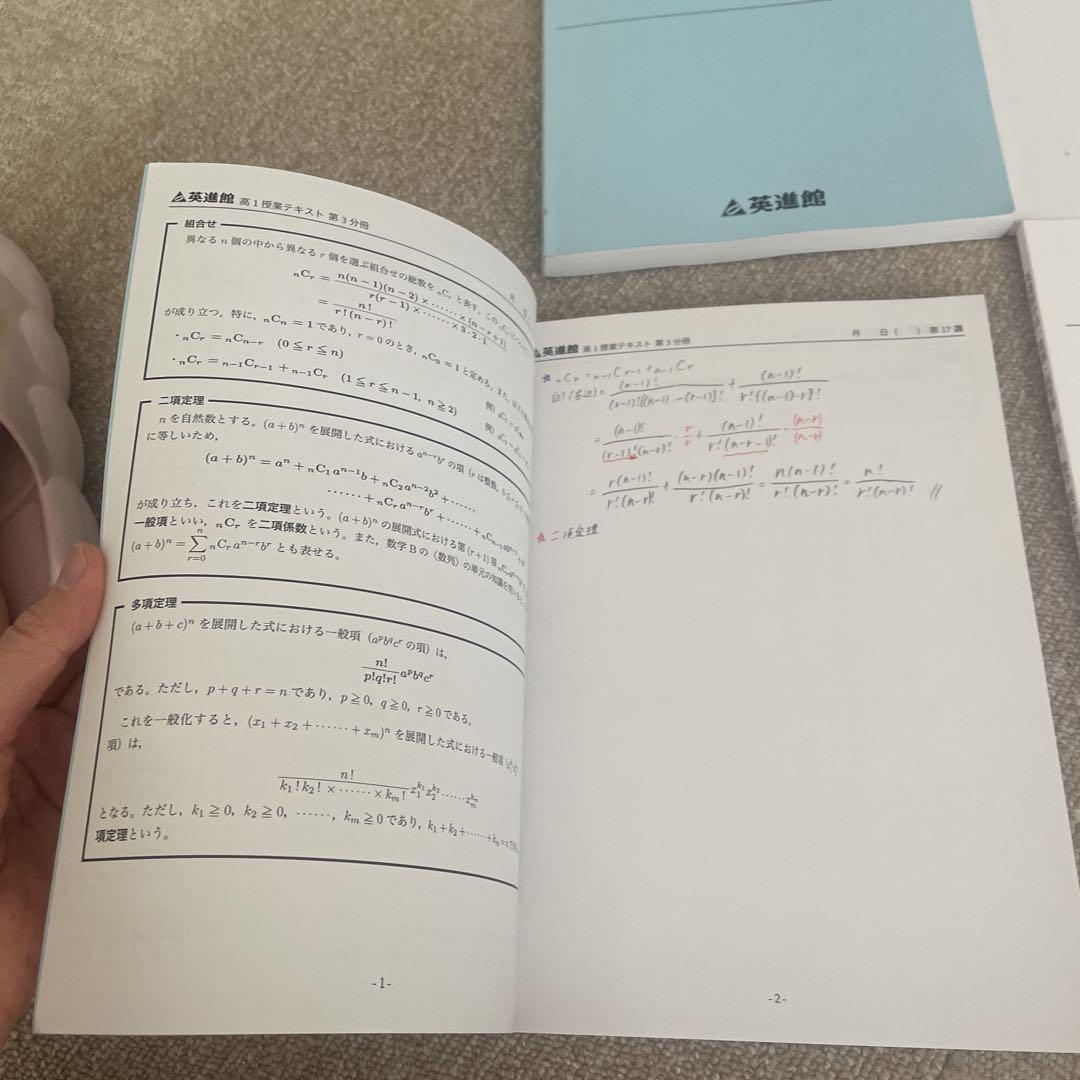 英進館
英進館 高1授業テキスト 第3分冊
月
組合せ
異なる n 個の中から異なる r 個を選ぶ組合せの総数を nCr と表す。この nCr について
nCr = n(n−1)(n−2)×……×(n−r+1) / r(r−1)×……×3·2·1
= n! / r!(n−r)!
が成り立つ。特に，nCn = 1 であり，r = 0 のとき，nC0 = 1 と定める。また，
・nCr = nCn−r (0 ≦ r ≦ n) 例)
・nCr = n−1Cr−1 + n−1Cr (1 ≦ r ≦ n−1, n ≧ 2) 例)
二項定理
n を自然数とする。(a+b)^n を展開した式における a^(n−r)b^r の項（r は整数，0 ≦ r
に等しいため，
(a+b)^n = a^n + nC1 a^(n−1)b + nC2 a^(n−2)b^2 + ……
…… + nCr a^(n−r)b^r + …… + nCn−1 ab^(n−1) +
が成り立ち，これを二項定理という。(a+b)^n の展開式における第 (r+1) 項 nCr
一般項といい，nCr を二項係数という。また，数学Bの〈数列〉の単元の知識を用いると，
(a+b)^n = Σ[r=0→n] nCr a^(n−r)b^r とも表せる。
多項定理
(a+b+c)^n を展開した式における一般項（a^p b^q c^r の項）は，
n! / p!q!r! a^p b^q c^r
である。ただし，p+q+r = n であり，p ≧ 0, q ≧ 0, r ≧ 0 である。
これを一般化すると，(x1 + x2 + …… + xm)^n を展開した式における一般項
項）は，
n! / k1! k2! × …… × km! x1^k1 x2^k2 …… xm^km
となる。ただし，k1 ≧ 0, k2 ≧ 0, ……, km ≧ 0 であり，k1 + k2 + ……
項定理という。
-1-
英進館 高1授業テキスト 第3分冊 月 日( ) 第17講
☆ nCr = n-1Cr-1 + n-1Cr
証)(右辺) = (n-1)! / (r-1)!{(n-1)-(r-1)}! + (n-1)! / r!{(n-1)-r}!
= (n-1)! / (r-1)!(n-r)! · r/r + (n-1)! / r!(n-r-1)! · (n-r)/(n-r)
= r(n-1)! / r!(n-r)! + (n-r)(n-1)! / r!(n-r)! = n(n-1)! / r!(n-r)! = n! / r!(n-r)! //
☆ 二項定理
-2-